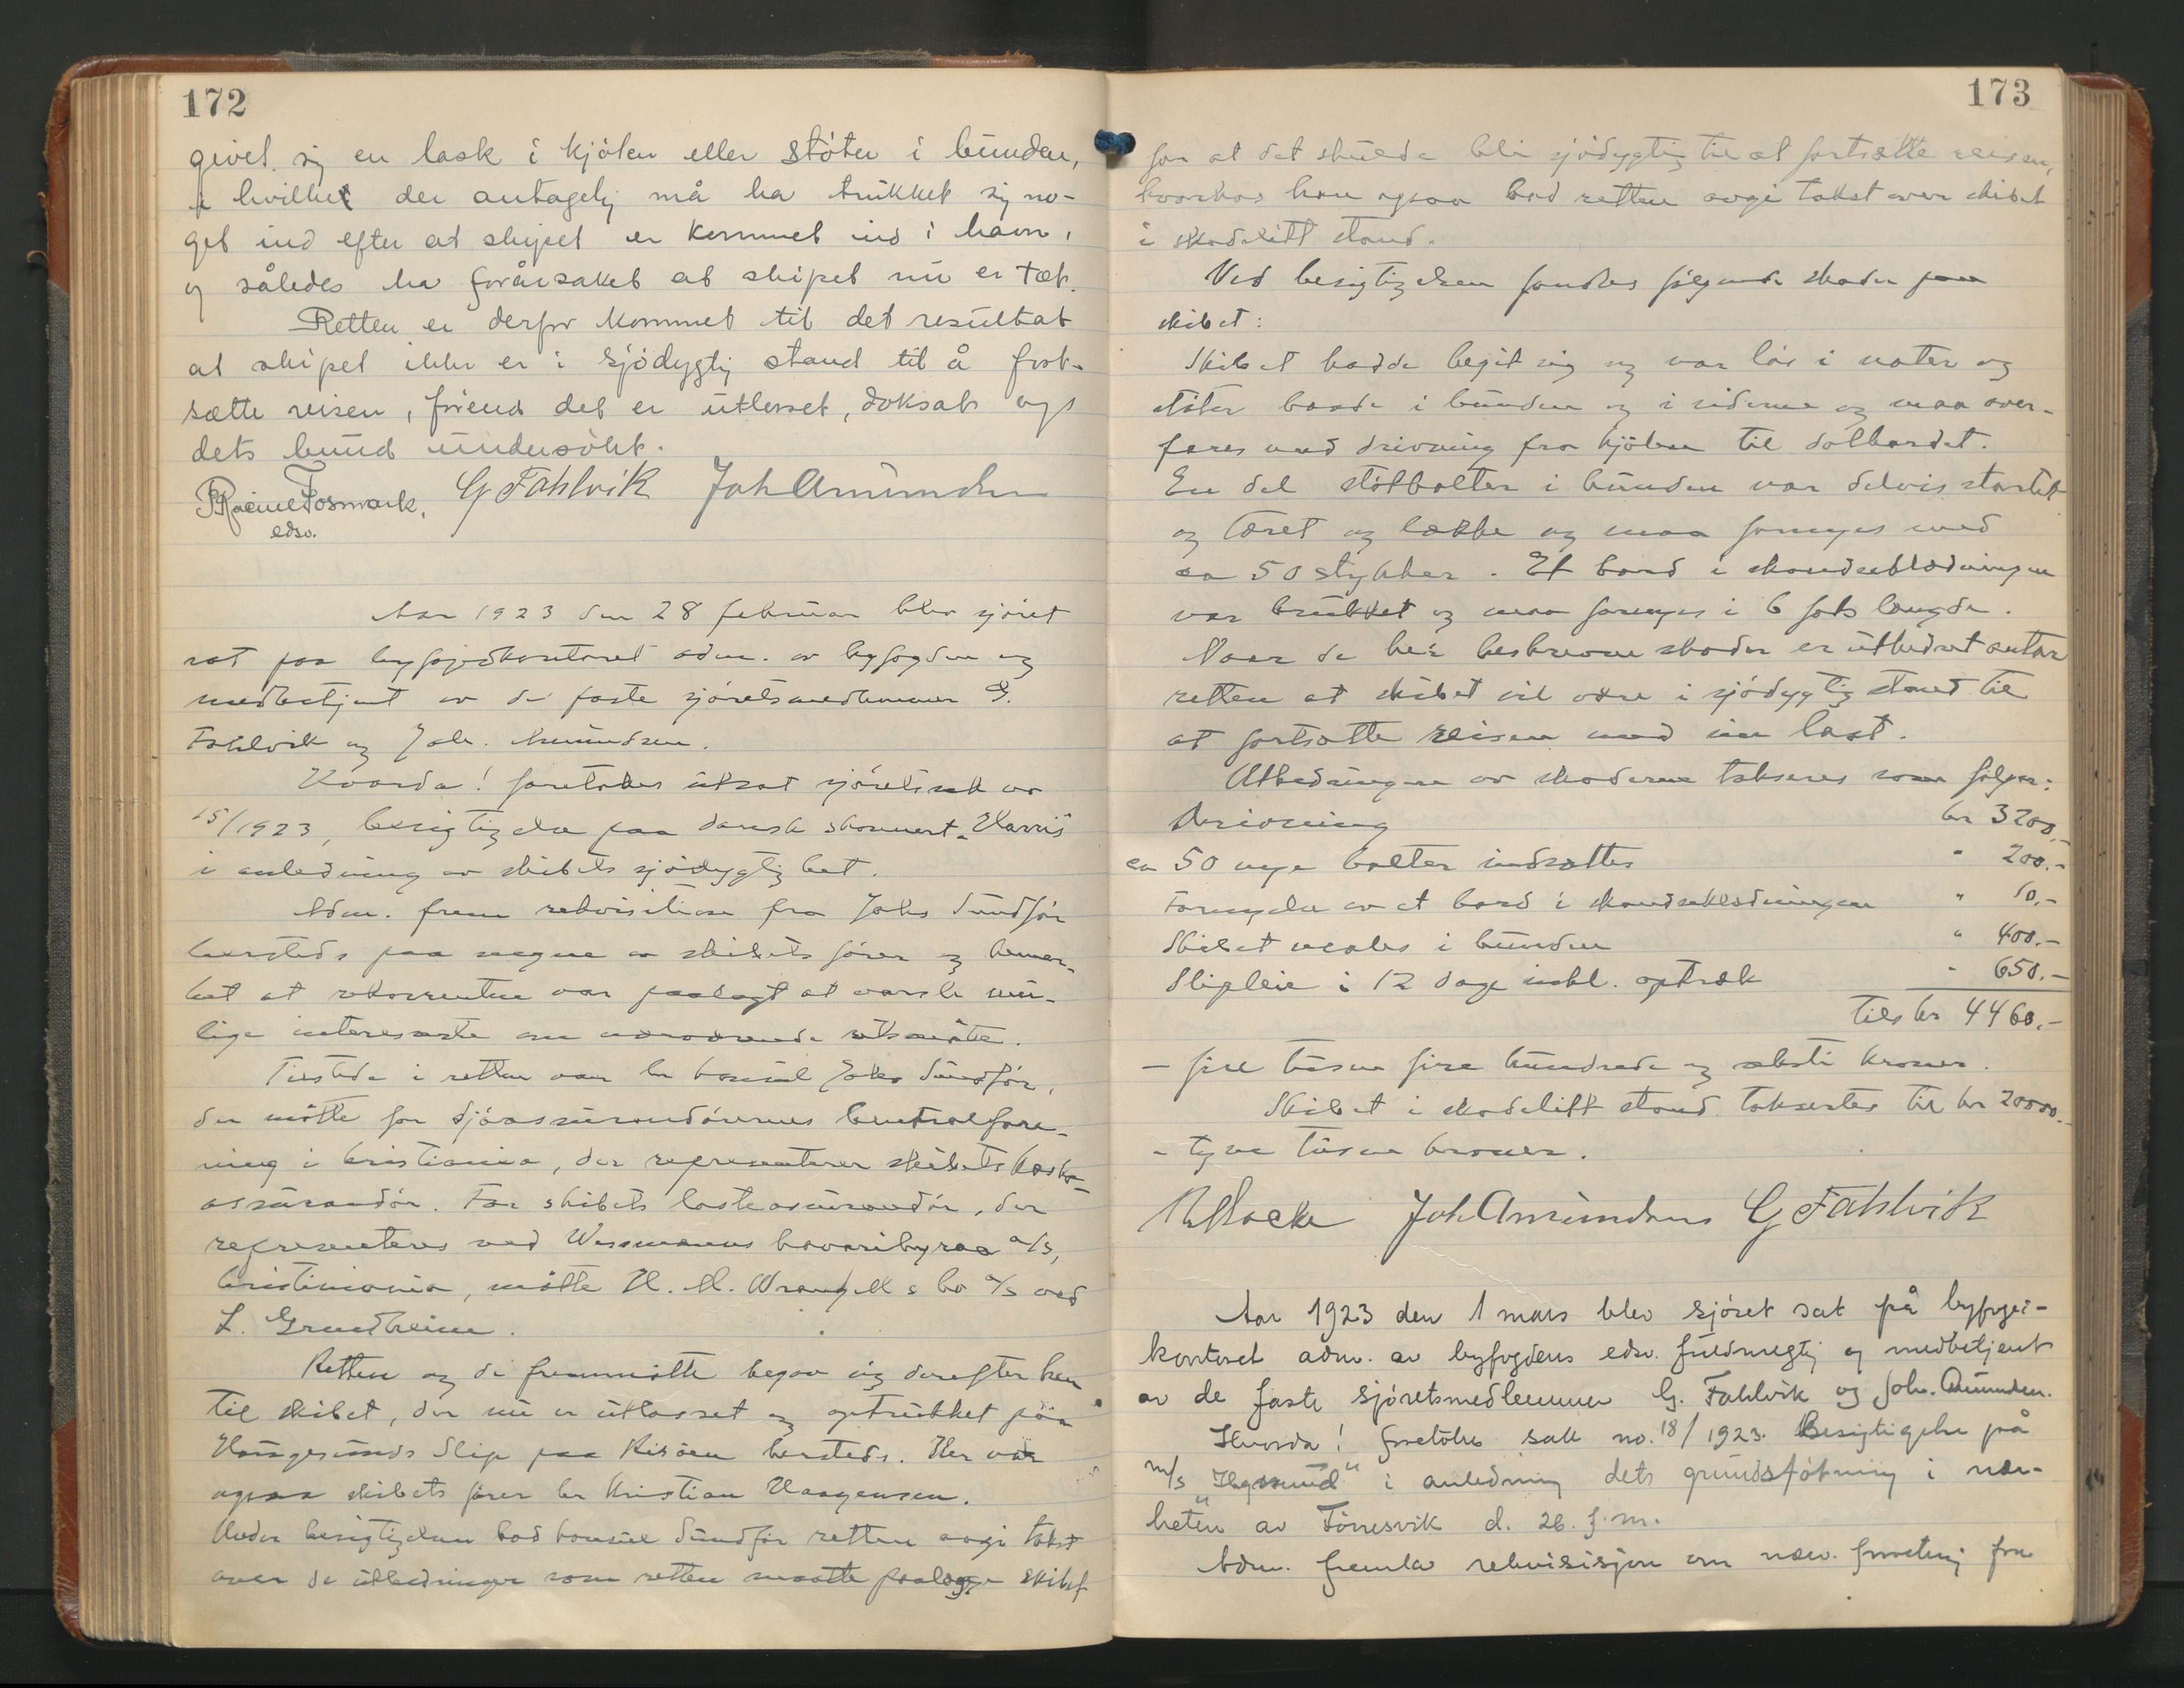 172
givet sig en lask i kjölen eller støter i bunden,
i hvilket der antagelig må ha trukket sig no-
get ind efter at skipet er kommet ind i havn,
og således ha forårsaket at skipet nu er tæt.
Retten er derfor kommet til det resultat
at skipet ikke er i sjödygtig stand til å fort-
sætte reisen, förend det er utlosset, doksat og
dets bund undersökt.
Fosmark, G Fahlvik Joh Amundsen
edsv.
Aar 1923 den 28 februar blev sjöret
sat paa byfogedkontoret adm. av byfogden og
medbetjent av de faste sjöretsmedlemmer G.
Fahlvik og Joh. Amundsen.
Hvorda! foretokes utsat sjöretssak nr
15/1923, besigtigelse paa dansk skonnert „Harris"
i anledning av skibets sjödygtighet.
Adm. frem rekvisition fra Johs Sundför
hersteds paa vegne av skibets förer og bemer-
ket at rekvirenten var paalagt at varsle mu-
lige interesserte om nærværende retsmöte.
Tilstede i retten var hr konsul Johs Sundför,
der mötte for Sjöassurandörernes Centralfore-
ning i Kristiania, der representerer skibets kasko-
assurandör. For skibets lasteassurandör, der
representeres ved Wessmanns havaribyraa a/s,
Kristiania, mötte H. M. Wrangell & Co a/s ved
L. Grindheim.
Retten og de fremmötte begav sig derefter hen
til skibet, der nu er utlosset og optrukket paa
Haugesunds Slip paa Risöen hersteds. Her var
ogsaa skibets förer hr Kristian Haagensen.
Under besigtigelsen bad konsul Sundför retten avgi takst
over de utbedringer som retten maatte paalægge skibet
173
for at det skulde bli sjödygtig til at fortsætte reisen,
hvorhos han ogsaa bad retten avgi takst over skibet
i skadelitt stand.
Ved besigtigelsen fandtes fölgende skader paa
skibet:
Skibet hadde begit sig og var lös i nater og
støter baade i bunden og i siderne og maa over-
fares med drivning fra kjölen til dolbordet.
En del støtbolter i bunden var delvis startet
og tæret og lække og maa fornyes med
ca 50 stykker. Et bord i skandseklædningen
var brukket og maa fornyes i 6 fots længde.
Naar de her beskrevne skader er utbedret antar
retten at skibet vil være i sjödygtig stand til
at fortsætte reisen med sin last.
Utbedringen av skaderne takseres som fölger:
Drivning kr 3200,-
ca 50 nye bolter indsættes " 200.-
Fornyelse av et bord i skandseklædningen " 10.-
Skibet males i bunden " 400.-
Slipleie i 12 dage inkl. optræk " 650.-
Tils kr 4460.-
- fire tusen fire hundrede og seksti kroner.
Skibet i skadelitt stand taksertes til kr 20000.-
- tyve tusen kroner.
Joh Amundsen G Fahlvik
Aar 1923 den 1 mars blev sjöret sat på byfoget-
kontoret adm. av byfogdens edsv. fuldmægtig og medbetjent
av de faste sjöretsmedlemmer G. Fahlvik og Joh. Amundsen.
Hvorda! foretokes sak no. 18/1923. Besigtigelse på
m/s „Hgsund" i anledning dets grundstötning i nær-
heten av Förresvik d. 26. f.m.
Adm. fremla rekvisisjon om næv. forretning fra